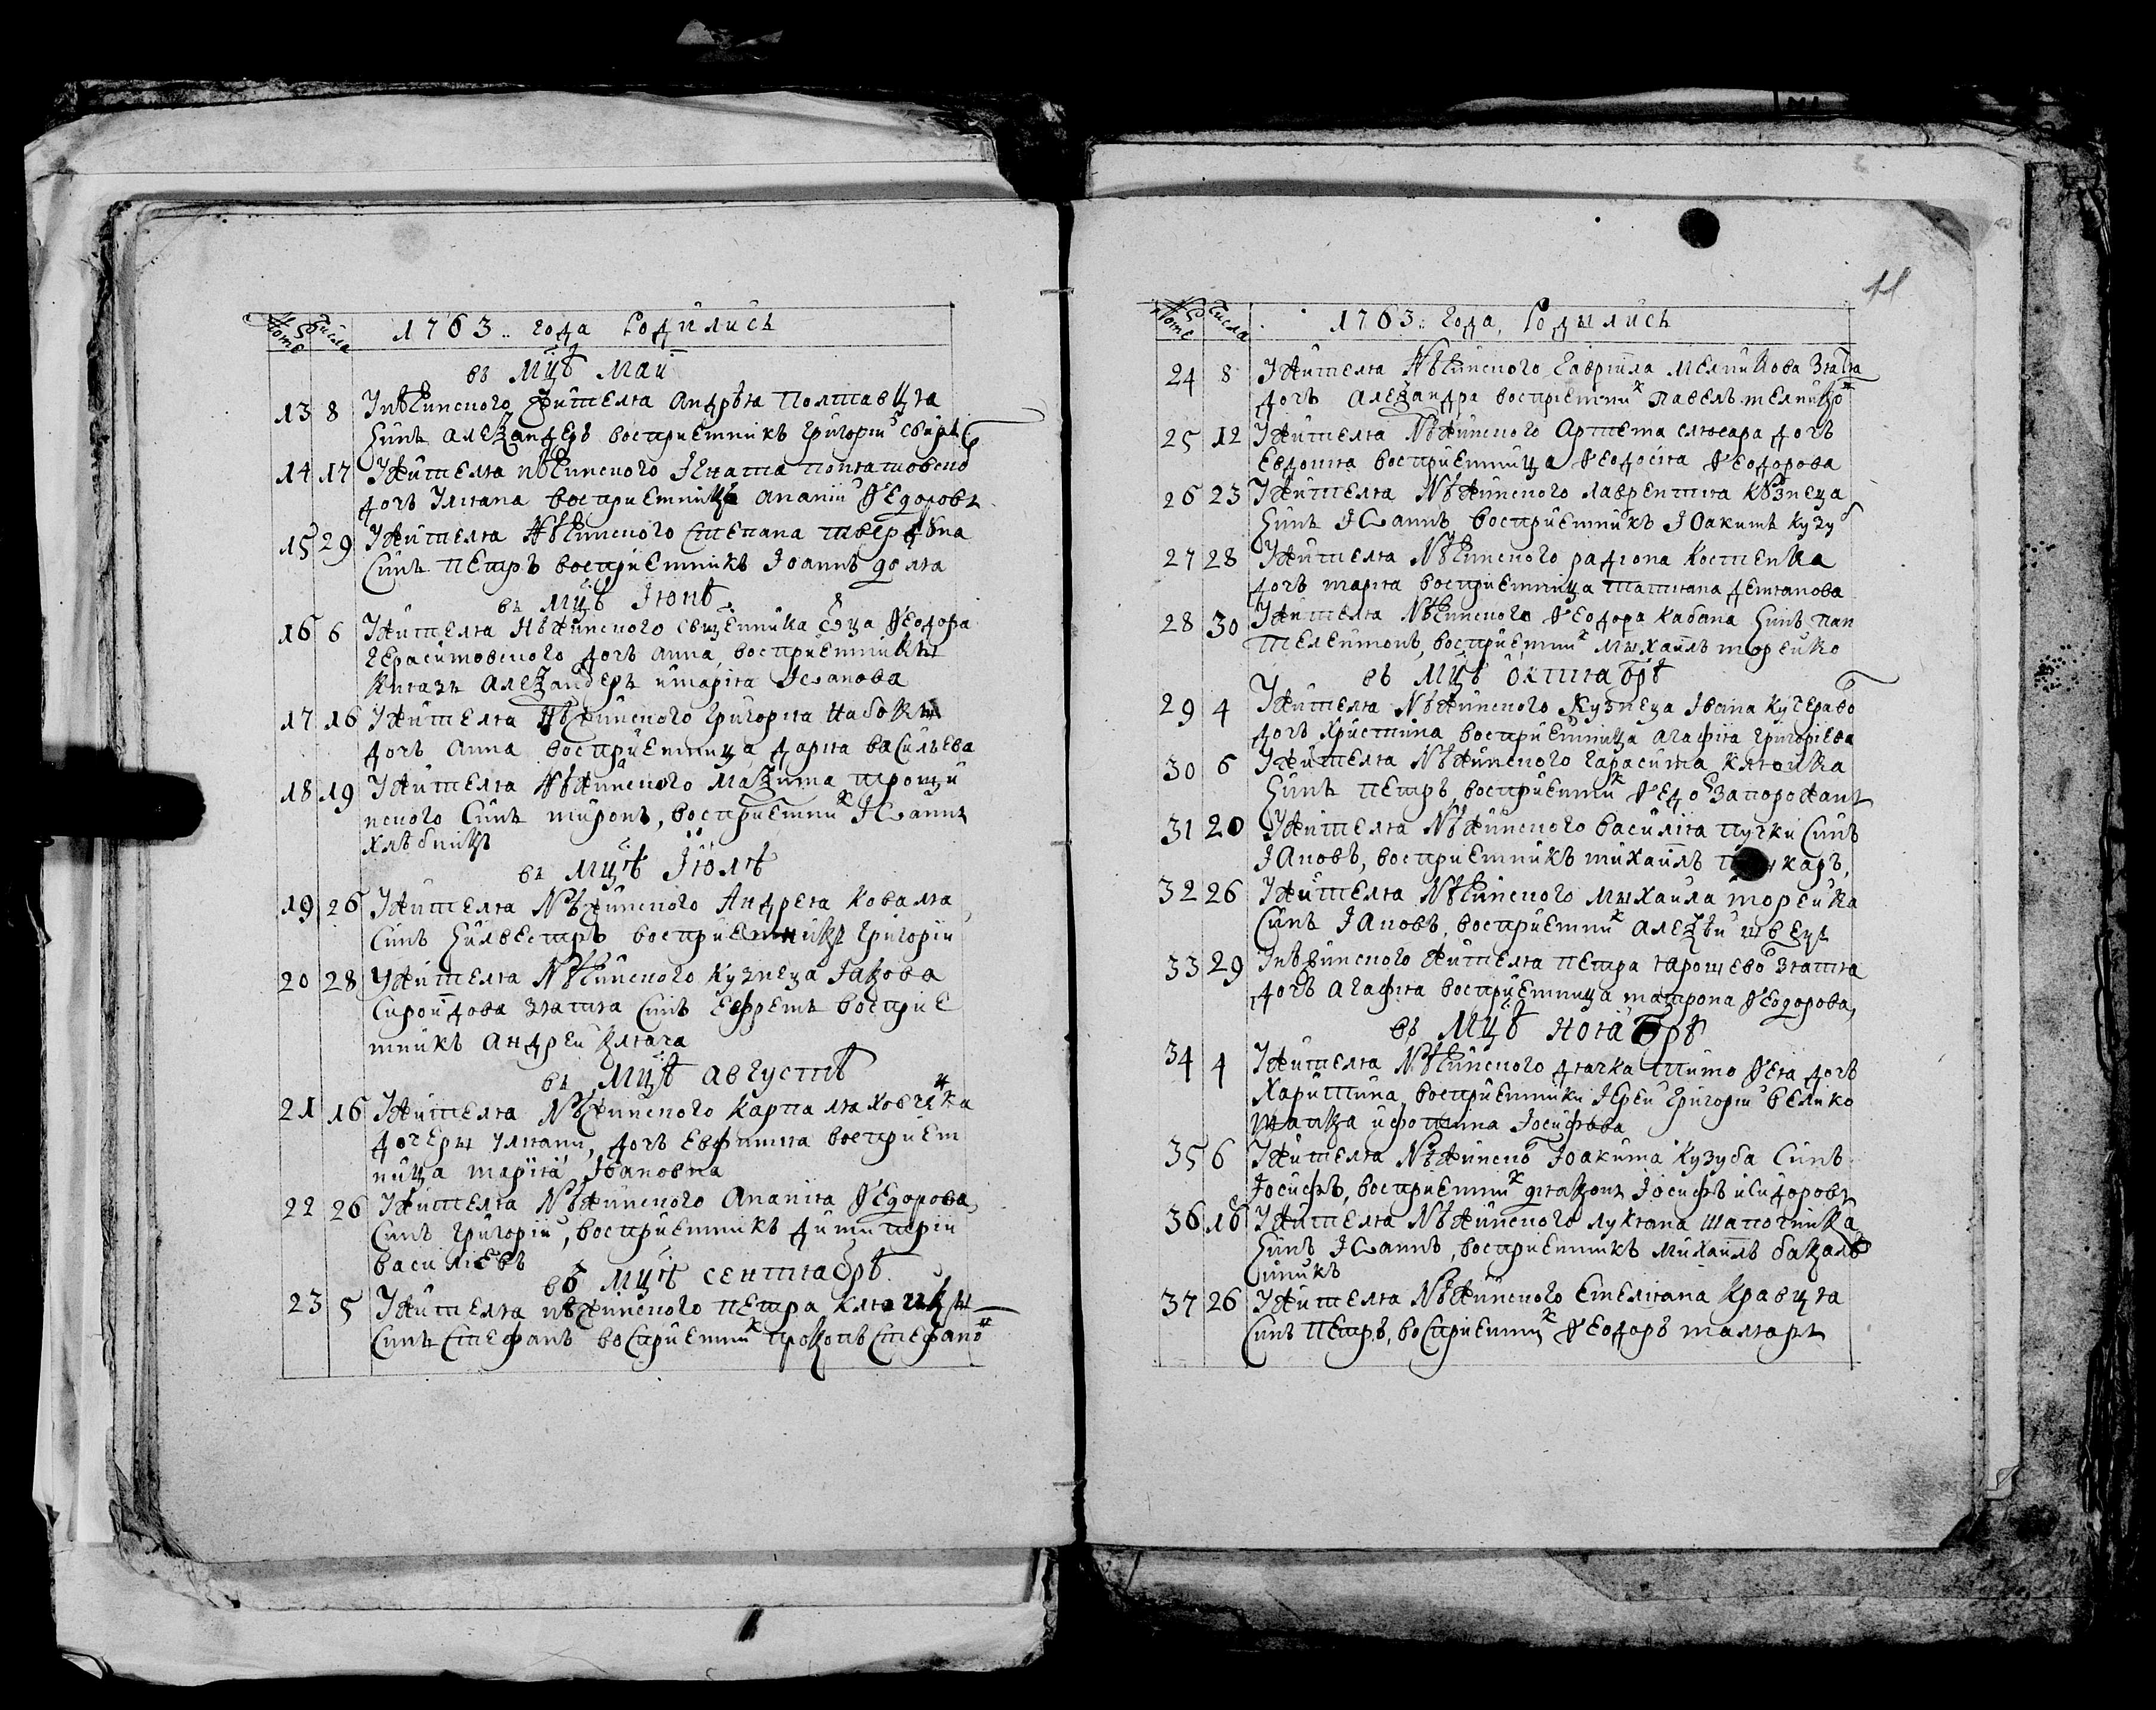 Числа
1763.. года Родились
въ Мцѣ Маи
13 8 У нѣжинского жителя Андрѣя Полтавця
Синъ Алеѯандеръ воспрiемникъ Григорiй
14 17 У Жителя нѣжинского Iгната
дочъ Улiяна воспрiемникъ Ананiй Ѳедоровъ
15 29 У Жителя Нѣжинского Степана
Синъ Петръ воспрiемникъ Iоаннъ доля
въ Мцѣ Iюнѣ
16 6 У Жителя Нѣжинского свщенника Ѳеодора
Герасимовского дочъ Анна, воспрiемники
Князь Алеѯандеръ и Марiя Iѡанова
17 16 У Жителя Нѣжинского Григорiя Набоки
дочъ Анна воспрiемница Дарiя Василъева
18 19 У Жителя Нѣжинского Маѯима Трощи
нского Синъ Миронъ, воспрiемник Iѡаннъ
Хлѣбникъ
въ Мцѣ Iюлѣ
19 26 У Жителя Нѣжинского Андрея Коваля
Синъ Силвестръ воспрiемникъ Григорiй
20 28 У Жителя Нѣжинского Кузнеца Iакова
Сироидова зятя Синъ Ефремъ воспрiе
мникъ Андреи Кляча
въ Мцѣ Августѣ
21 16 У Жителя Нѣжинского Карпа
дочеры Улiяни, дочъ Евфимiя воспрiем
ница Марiя Iвановна
22 26 У Жителя Нѣжинского Ананiя Ѳедорова,
Синъ Григорiй, воспрiемникъ Димитрiй
Василiевъ
въ Мцѣ Сентябрѣ.
23 5 У Жителя нѣжинского Петра
Синъ Стефанъ воспрiемник Прокопъ Стефано
11
Числа
1763.. года, Родылись
24 8 У Жителя Нѣжинского Гаврiила Мелникова Зятя
дочъ Алеѯандра воспрiемник Павелъ
25 12 У Жителя Нѣжинского Артема слюсара дочъ
Евдокiя воспрiемница Ѳеодосiя Ѳеодорова
26 23 У Жителя Нѣжинского Лаврентiя Кузнеца
Синъ Iѡаннъ воспрiемникъ Iоакимъ Кузуб
27 28 У Жителя Нѣжинского Радiона Костенка
дочъ Марiя воспрiемница Татiяна Демянова
28 30 У Жителя Нѣжинского Ѳеодора Кабана Синъ Пан
телеимонъ, воспрiемник Мыхаилъ Торейко
въ Мцѣ Октябрѣ
29 4 У Жителя Нѣжинского Кузнеца Iвана Кучераво
дочъ Христина воспрiемница Агафiя Григорiева
30 6 У Жителя Нѣжинского Гарасима
Синъ Петръ, воспрiемник Ѳедор Запорожанъ
31 20 У Жителя Нѣжинского Василiя Пучки Синъ
Iаковъ, воспрiемникъ Михаилъ
32 26 У Жителя Нѣжинского Мыхаила Торейка
Синъ Iаковъ, воспрiемник Алеѯѣй швецъ
33 29 У нѣжинского Жителя Петра зятя
дочъ Агафiя воспрiемница Матрона Ѳеодорова,
въ Мцѣ Ноябрѣ
34 4 У Жителя Нѣжинского дячка Тимоѳея дочъ
Харитина, воспрiемники Iерей Григорiй Велико
шапка и Фотина Iосифова
35 6 У Жителя Нѣжинско Iоакима Кузуба Синъ
Iосифъ, воспрiемник дiяконъ Iосифъ Исидоровъ
36 16 У Жителя Нѣжинского Лукiяна шапочника
Синъ Iѡаннъ, воспрiемникъ Михаилъ бакалѣ
йникъ
37 26 У Жителя Нѣжинского Емелiяна Кравця
Синъ Петръ, воспрiемник Ѳеодоръ маляръ